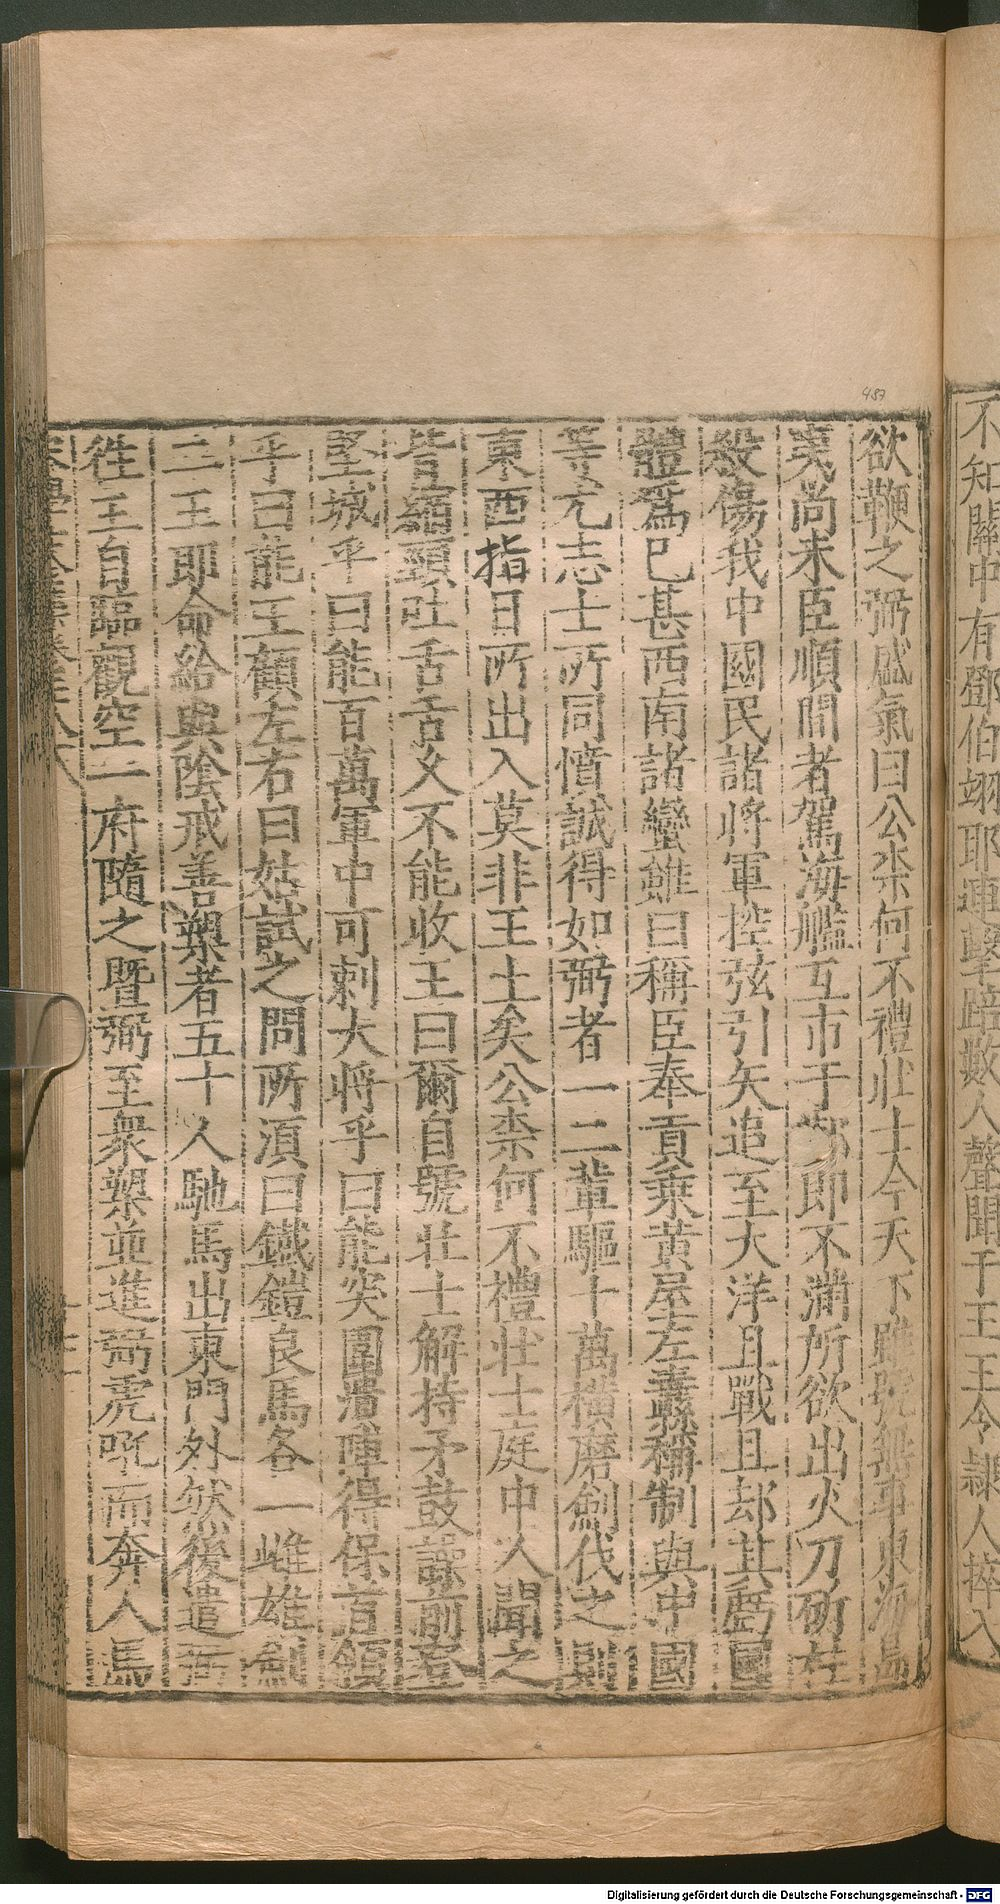 不知關中有鄧伯翊耶連擊踣數人聲聞于王王令隷人捽入
487
欲鞭之弼盛氣曰公柰何不禮壯士今天下雖號無事東海島
夷尚未臣順間者駕海艦互市于鄞即不滿所欲出火刀斫柱
殺傷我中國民諸將軍控弦引矢追至大洋且戰且却其虧國
體爲已甚西南諸蠻雖曰稱臣奉貢乘黃屋左纛稱制與中國
等尤志士所同憤誠得如弼者一二輩驅十萬橫磨劍伐之則
東西指日所出入莫非王土矣公柰何不禮壯士庭中人聞之
皆縮頸吐舌舌久不能收王曰爾自號壯士解持矛鼓譟前登
堅城乎曰能百萬軍中可刺大將乎曰能突圍潰陣得保首領
乎曰能王顧左右曰姑試之問所湏曰鐵鎧良馬各一雌雄劍
二王即命給與陰戒善槊者五十人馳馬出東門外然後遣弼
徃王自臨觀空一府隨之暨弼至衆槊並進弼虎吼而奔人馬
Digitalisierung gefördert durch die Deutsche Forschungsgemeinschaft - DFG